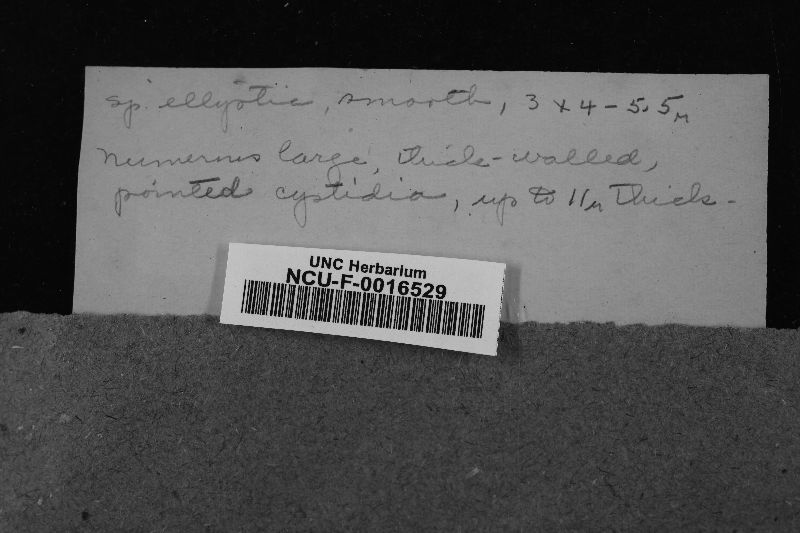 sp. elliptic, smooth, 3 x 4 - 5.5 μ
Numerous large, thick-walled,
pointed cystidia, up to 11 μ thick -
UNC Herbarium
NCU-F-0016529